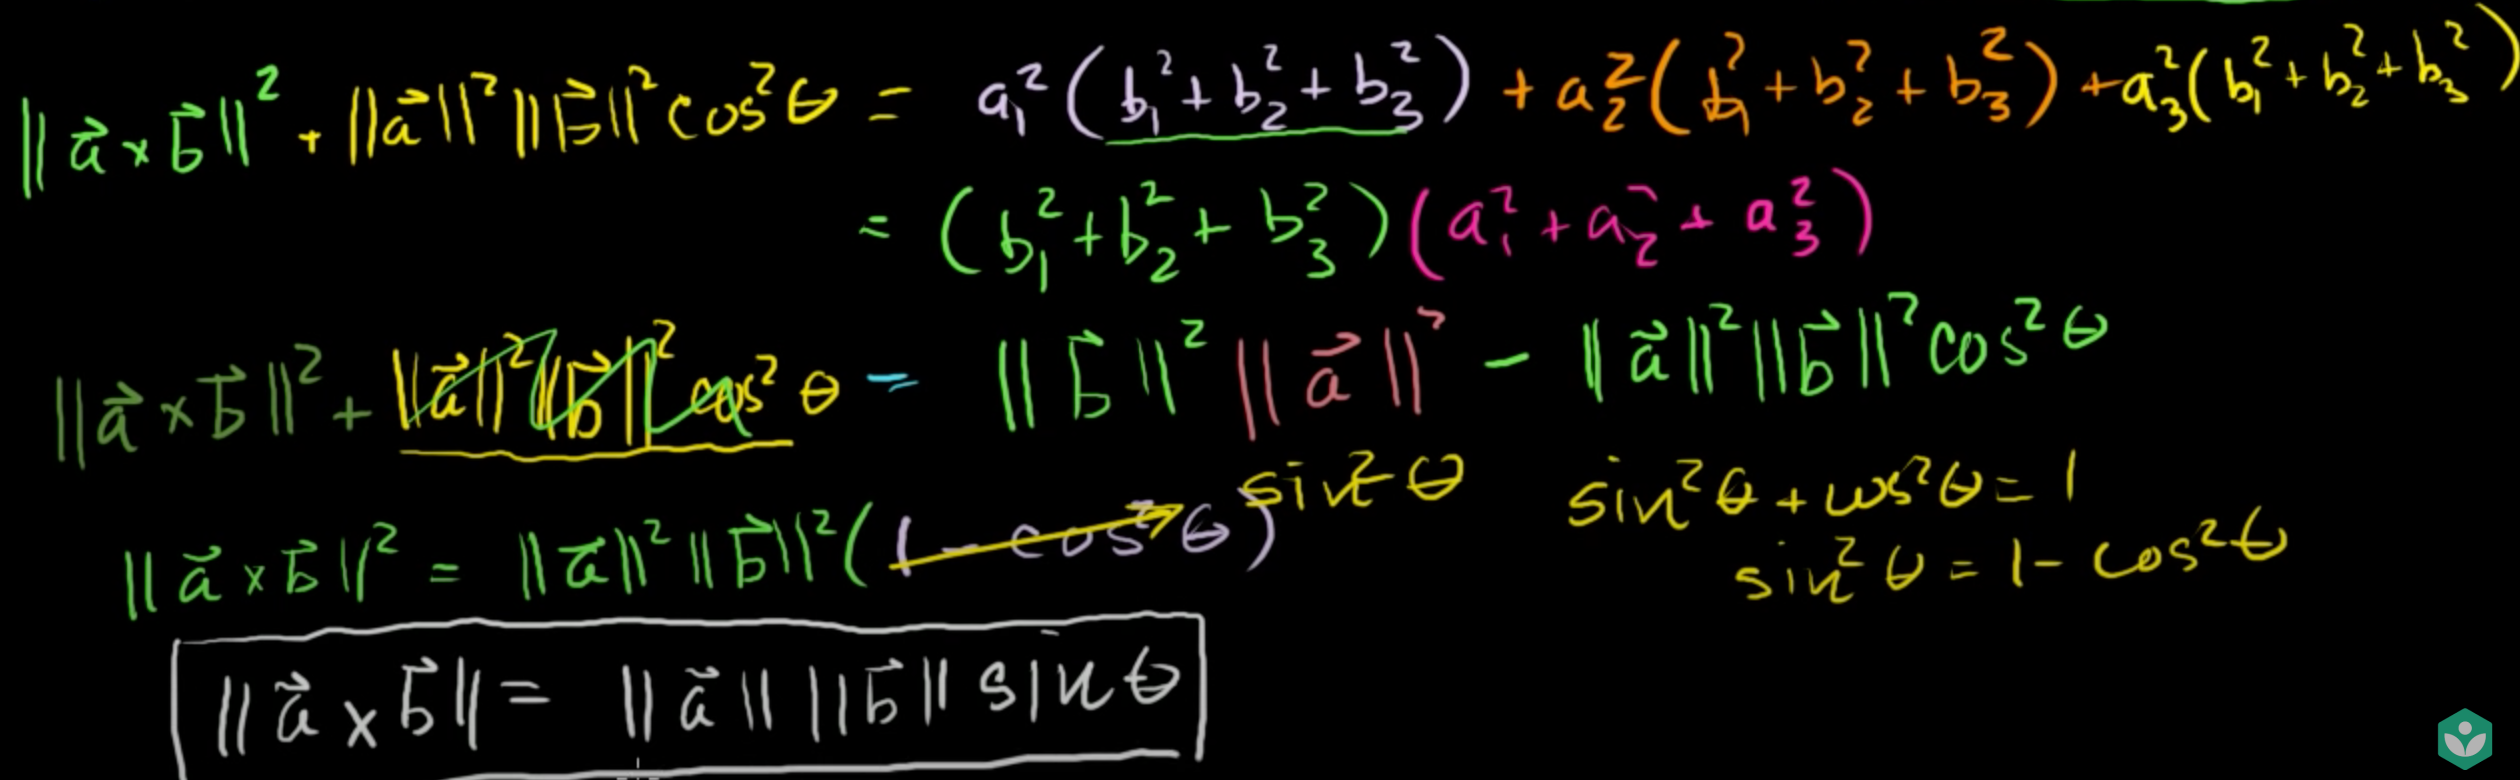 ‖a⃗ × b⃗‖² + ‖a⃗‖² ‖b⃗‖² cos²θ = a₁²(b₁² + b₂² + b₃²) + a₂²(b₁² + b₂² + b₃²) + a₃²(b₁² + b₂² + b₃²)
= (b₁² + b₂² + b₃²)(a₁² + a₂² + a₃²)
‖a⃗ × b⃗‖² + ‖a⃗‖² ‖b⃗‖² cos²θ = ‖b⃗‖² ‖a⃗‖² - ‖a⃗‖² ‖b⃗‖² cos²θ
‖a⃗ × b⃗‖² = ‖a⃗‖² ‖b⃗‖² (1 - cos²θ) sin²θ
sin²θ + cos²θ = 1
sin²θ = 1 - cos²θ
‖a⃗ × b⃗‖ = ‖a⃗‖ ‖b⃗‖ sin θ